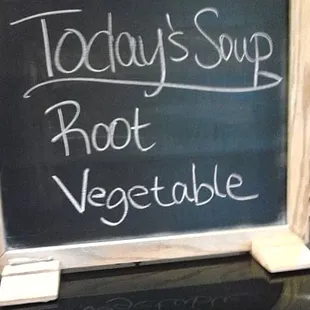 Today's Soup
Root
Vegetable